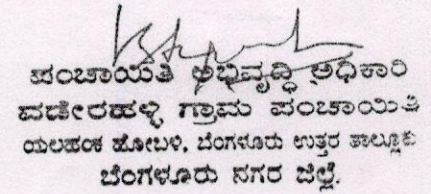 ಪಂಚಾಯತಿ ಅಭಿವೃದ್ಧಿ ಅಧಿಕಾರಿ
ವಡೇರಹಳ್ಳಿ ಗ್ರಾಮ ಪಂಚಾಯಿತಿ
ಯಲಹಂಕ ಹೋಬಳಿ, ಬೆಂಗಳೂರು ಉತ್ತರ ತಾಲ್ಲೂಕು
ಬೆಂಗಳೂರು ನಗರ ಜಿಲ್ಲೆ.